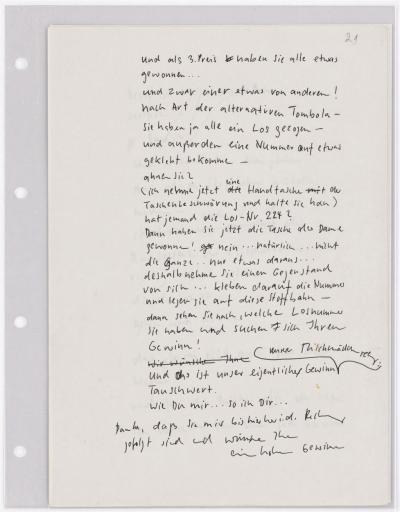 21
und als 3. Preis haben sie alle etwas
gewonnen...
und zwar einer etwas von anderen!
nach Art der alternativen Tombola –
Sie haben ja alle ein Los gezogen –
und außerdem eine Nummer auf etwas
geklebt bekommen –
ahnen Sie?
(ich nehme jetzt die eine Handtasche mit der
Taschenbeschwörung und halte sie hoch)
hat jemand die Los-Nr. 224?
Dann haben Sie jetzt die Tasche der Dame
gewonnen! nein... natürlich... nicht
die Ganze... nur etwas daraus...
deshalb nehme Sie einen Gegenstand
von sich... kleben darauf die Nummer
und legen sie auf diese Stoffbahn –
dann sehen Sie nach, welche Losnummer
Sie haben und suchen sich Ihren
Gewinn!
Wir wünsche Ihne
und das ist unser eigentlicher Gewinn
Tauschwert.
Wie Du mir... so ich Dir...
Danke, daß Sie mir bis hierher
gefolgt sind und wünsche Ihne
ein hohen Gewinn